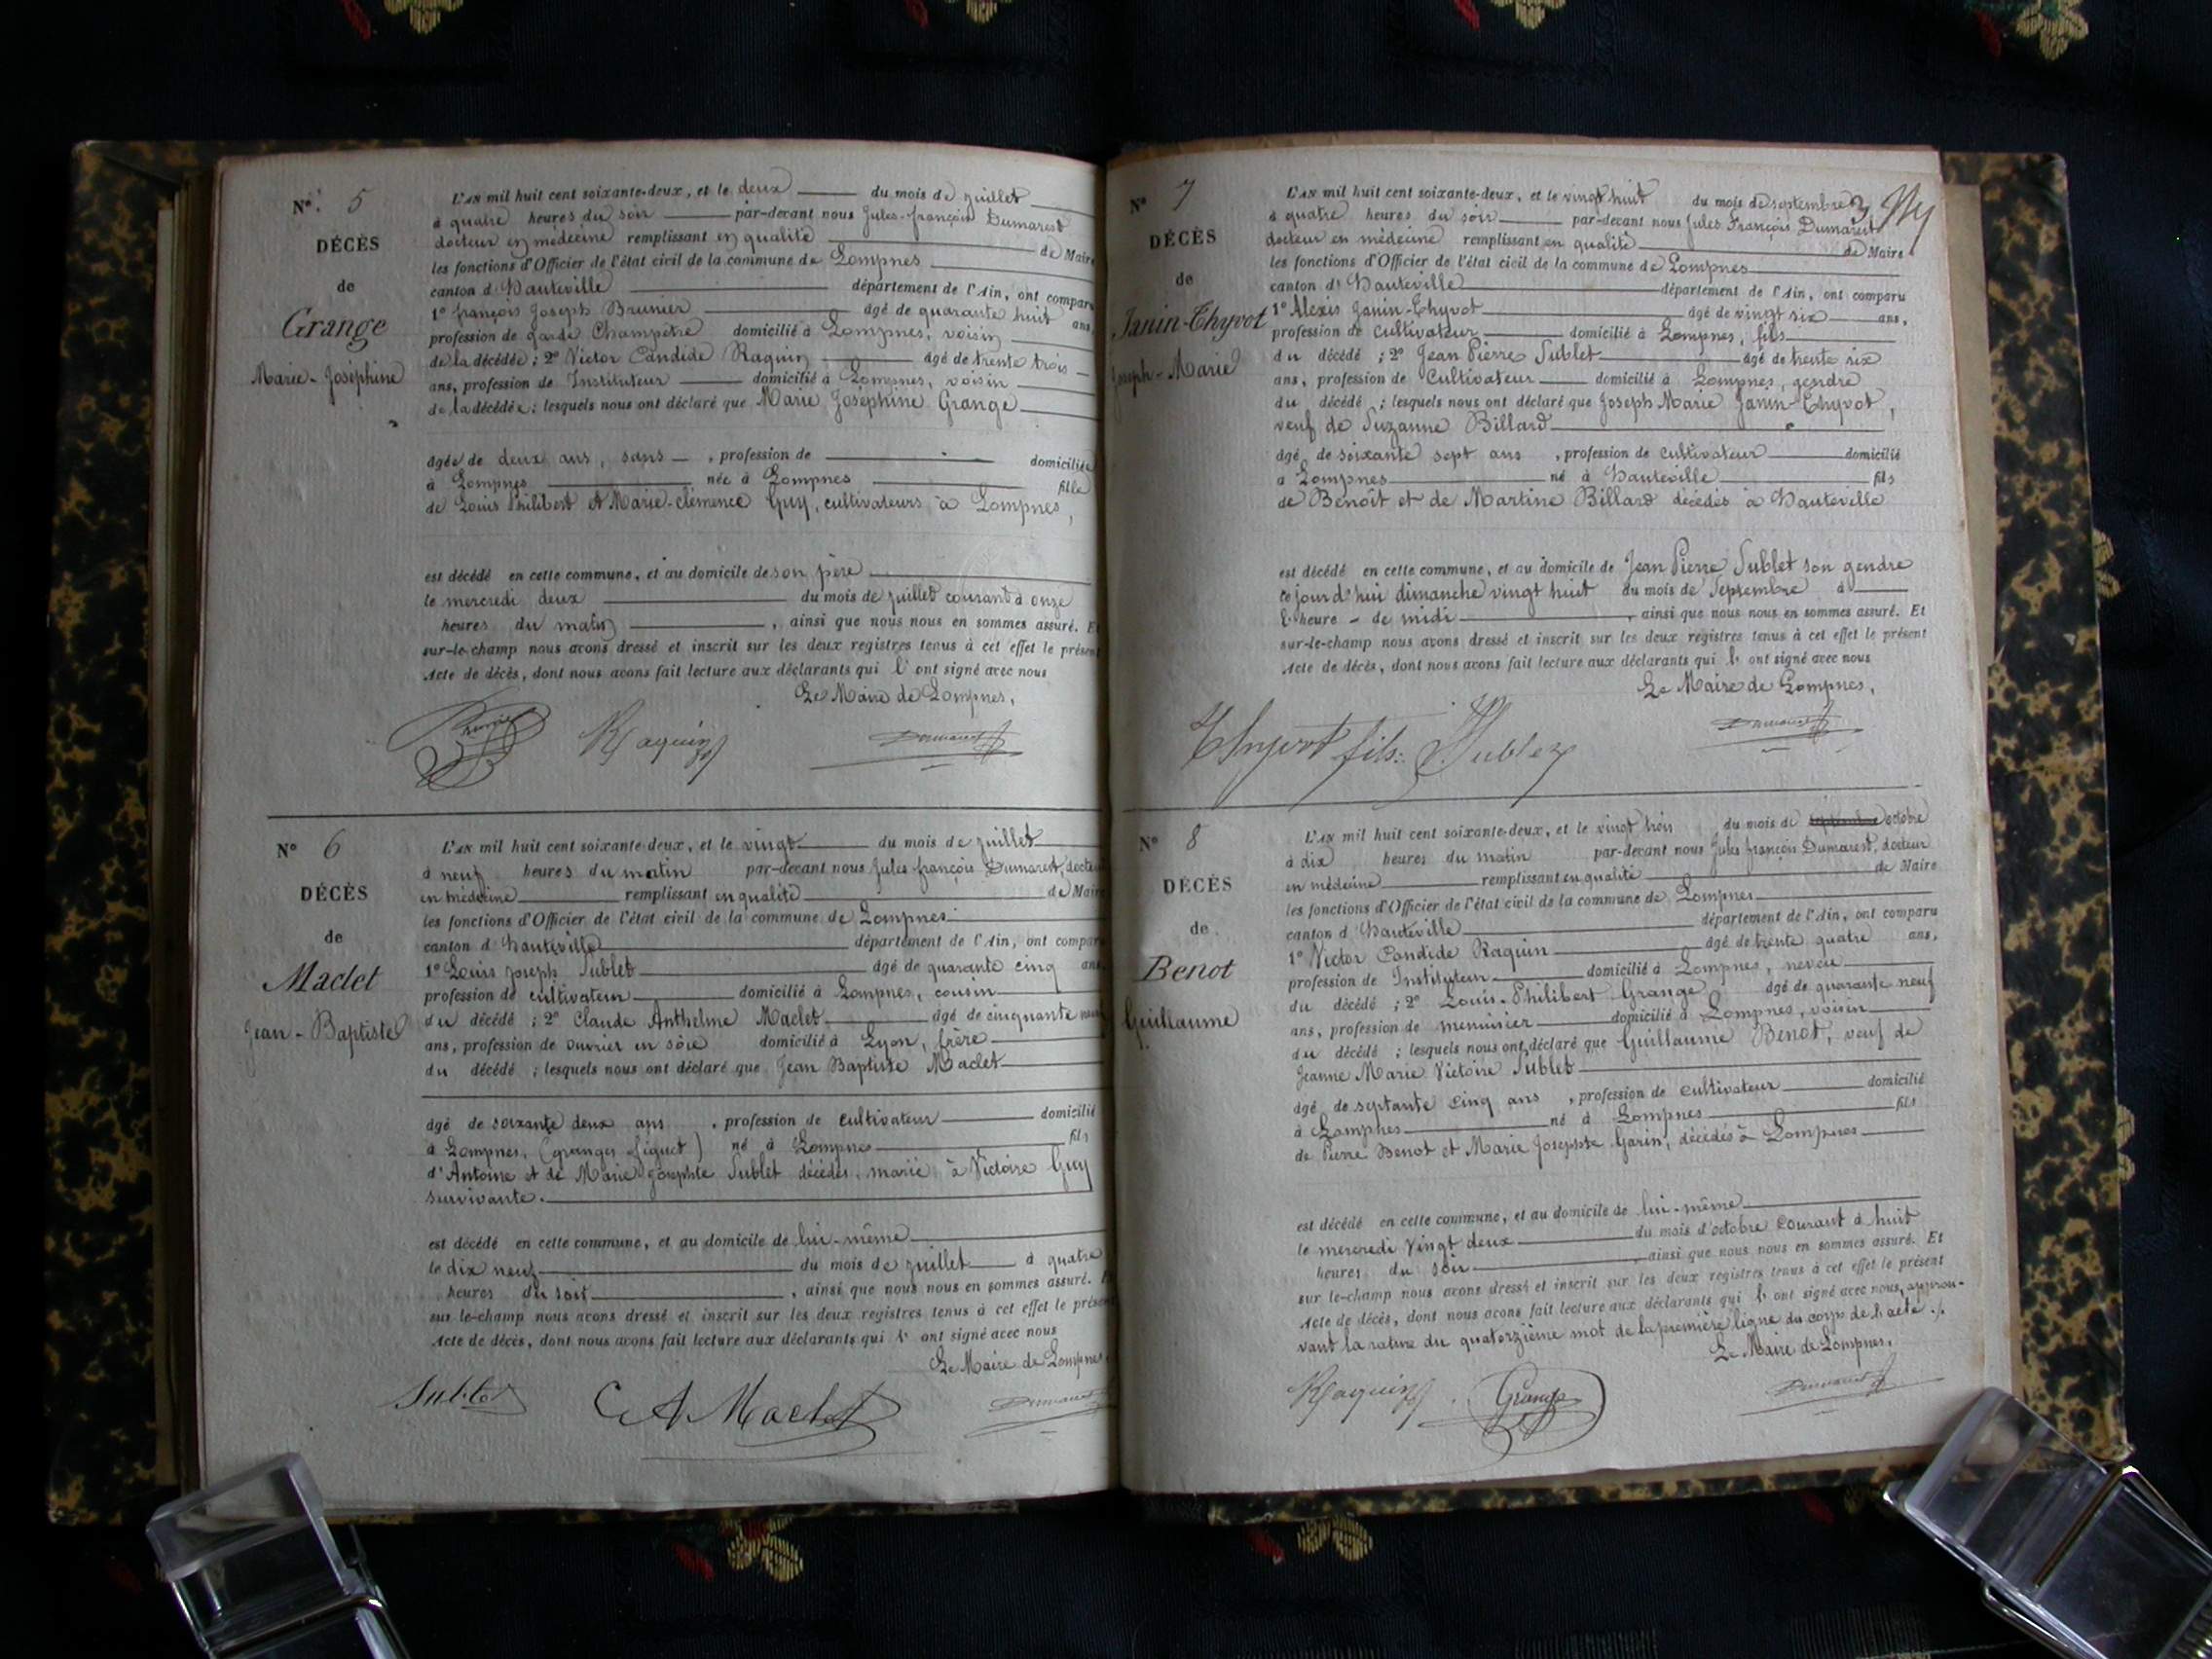 N° 5
DÉCÈS
de
Grange
Marie-Joséphine
L'AN mil huit cent soixante-deux, et le deux du mois de juillet
à quatre heures du soir par-devant nous Jules-françois Dumarest
docteur en médecine remplissant en qualité de Maire
les fonctions d'Officier de l'état civil de la commune de Lompnes
canton d'Hauteville département de l'Ain, ont comparu
1° françois Joseph Brunier âgé de quarante huit ans,
profession de garde Champêtre domicilié à Lompnes, voisin
de la décédée ; 2° Victor Candide Raquin âgé de trente trois
ans, profession de Instituteur domicilié à Lompnes, voisin
de la décédée ; lesquels nous ont déclaré que Marie Joséphine Grange
âgée de deux ans, sans , profession de domiciliée
à Lompnes née à Lompnes fille
de Louis Philibert et Marie-clémence Guy, cultivateurs à Lompnes,
est décédé en cette commune, et au domicile de son père
le mercredi deux du mois de juillet courant à onze
heures du matin , ainsi que nous nous en sommes assuré. Et
sur-le-champ nous avons dressé et inscrit sur les deux registres tenus à cet effet le présent
Acte de décès, dont nous avons fait lecture aux déclarants qui l' ont signé avec nous
Le Maire de Lompnes,
Brunier Raquin Dumarest
N° 6
DÉCÈS
de
Maclet
Jean-Baptiste
L'AN mil huit cent soixante-deux, et le vingt du mois de juillet
à neuf heures du matin par-devant nous Jules françois Dumarest, docteur
en médecine remplissant en qualité de Maire
les fonctions d'Officier de l'état civil de la commune de Lompnes
canton d'Hauteville département de l'Ain, ont comparu
1° Louis Joseph Sublet âgé de quarante cinq ans
profession de cultivateur domicilié à Lompnes, cousin
du décédé ; 2° Claude Anthelme Maclet âgé de cinquante neuf
ans, profession de ouvrier en sôie domicilié à Lyon, frère
du décédé ; lesquels nous ont déclaré que Jean Baptiste Maclet
âgé de soixante deux ans , profession de cultivateur domicilié
à Lompnes, (granges ) né à Lompnes fils
d'Antoine et de Marie Josephte Sublet décédés, marié à Victoire Guy
survivante.
est décédé en cette commune, et au domicile de lui-même
le dix neuf du mois de juillet à quatre
heures du soir , ainsi que nous nous en sommes assuré. Et
sur le-champ nous avons dressé et inscrit sur les deux registres tenus à cet effet le présent
Acte de décès, dont nous avons fait lecture aux déclarants qui l' ont signé avec nous
Le Maire de Lompnes,
Sublet C A Maclet Dumarest
N° 7
DÉCÈS
de
Janin-Thyvot
Joseph-Marie
L'AN mil huit cent soixante-deux, et le vingt huit du mois de septembre 3
à quatre heures du soir par-devant nous Jules François Dumarest
docteur en médecine remplissant en qualité de Maire
les fonctions d'Officier de l'état civil de la commune de Lompnes
canton d'Hauteville département de l'Ain, ont comparu
1° Alexis Janin-Thyvot âgé de vingt six ans,
profession de cultivateur domicilié à Lompnes, fils
du décédé ; 2° Jean Pierre Sublet âgé de trente six
ans, profession de Cultivateur domicilié à Lompnes, gendre
du décédé ; lesquels nous ont déclaré que Joseph Marie Janin-Thyvot,
veuf de Suzanne Billard
âgé de soixante sept ans , profession de cultivateur domicilié
à Lompnes né à Hauteville fils
de Benoît et de Martine Billard décédés à Hauteville
est décédé en cette commune, et au domicile de Jean Pierre Sublet son gendre
ce jourd'hui dimanche vingt huit du mois de Septembre à
l'heure de midi , ainsi que nous nous en sommes assuré. Et
sur-le-champ nous avons dressé et inscrit sur les deux registres tenus à cet effet le présent
Acte de décès, dont nous avons fait lecture aux déclarants qui l' ont signé avec nous
Le Maire de Lompnes,
Thyvot fils. Sublet Dumarest
N° 8
DÉCÈS
de
Benot
Guillaume
L'AN mil huit cent soixante-deux, et le vingt trois du mois de septembre octobre
à dix heures du matin par-devant nous Jules françois Dumarest, docteur
en médecine remplissant en qualité de Maire
les fonctions d'Officier de l'état civil de la commune de Lompnes
canton d'Hauteville département de l'Ain, ont comparu
1° Victor Candide Raquin âgé de trente quatre ans,
profession de Instituteur domicilié à Lompnes, neveu
du décédé ; 2° Louis-Philibert Grange âgé de quarante neuf
ans, profession de menuisier domicilié à Lompnes, voisin
du décédé ; lesquels nous ont déclaré que Guillaume Benot, veuf de
Jeanne Marie Victoire Sublet
âgé de septante cinq ans , profession de cultivateur domicilié
à Lompnes né à Lompnes fils
de Pierre Benot et Marie Josephte Garin, décédés à Lompnes
est décédé en cette commune, et au domicile de lui-même
le mercredi vingt deux du mois d'octobre courant à huit
heures du soir , ainsi que nous nous en sommes assuré. Et
sur le-champ nous avons dressé et inscrit sur les deux registres tenus à cet effet le présent
Acte de décès, dont nous avons fait lecture aux déclarants qui l' ont signé avec nous, approu-
vant la rature du quatorzième mot de la première ligne du corps de l'acte ./.
Le Maire de Lompnes,
Raquin Grange Dumarest